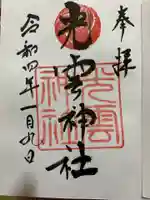 奉拝
光雲神社
令和四年一月九日
光雲
神社